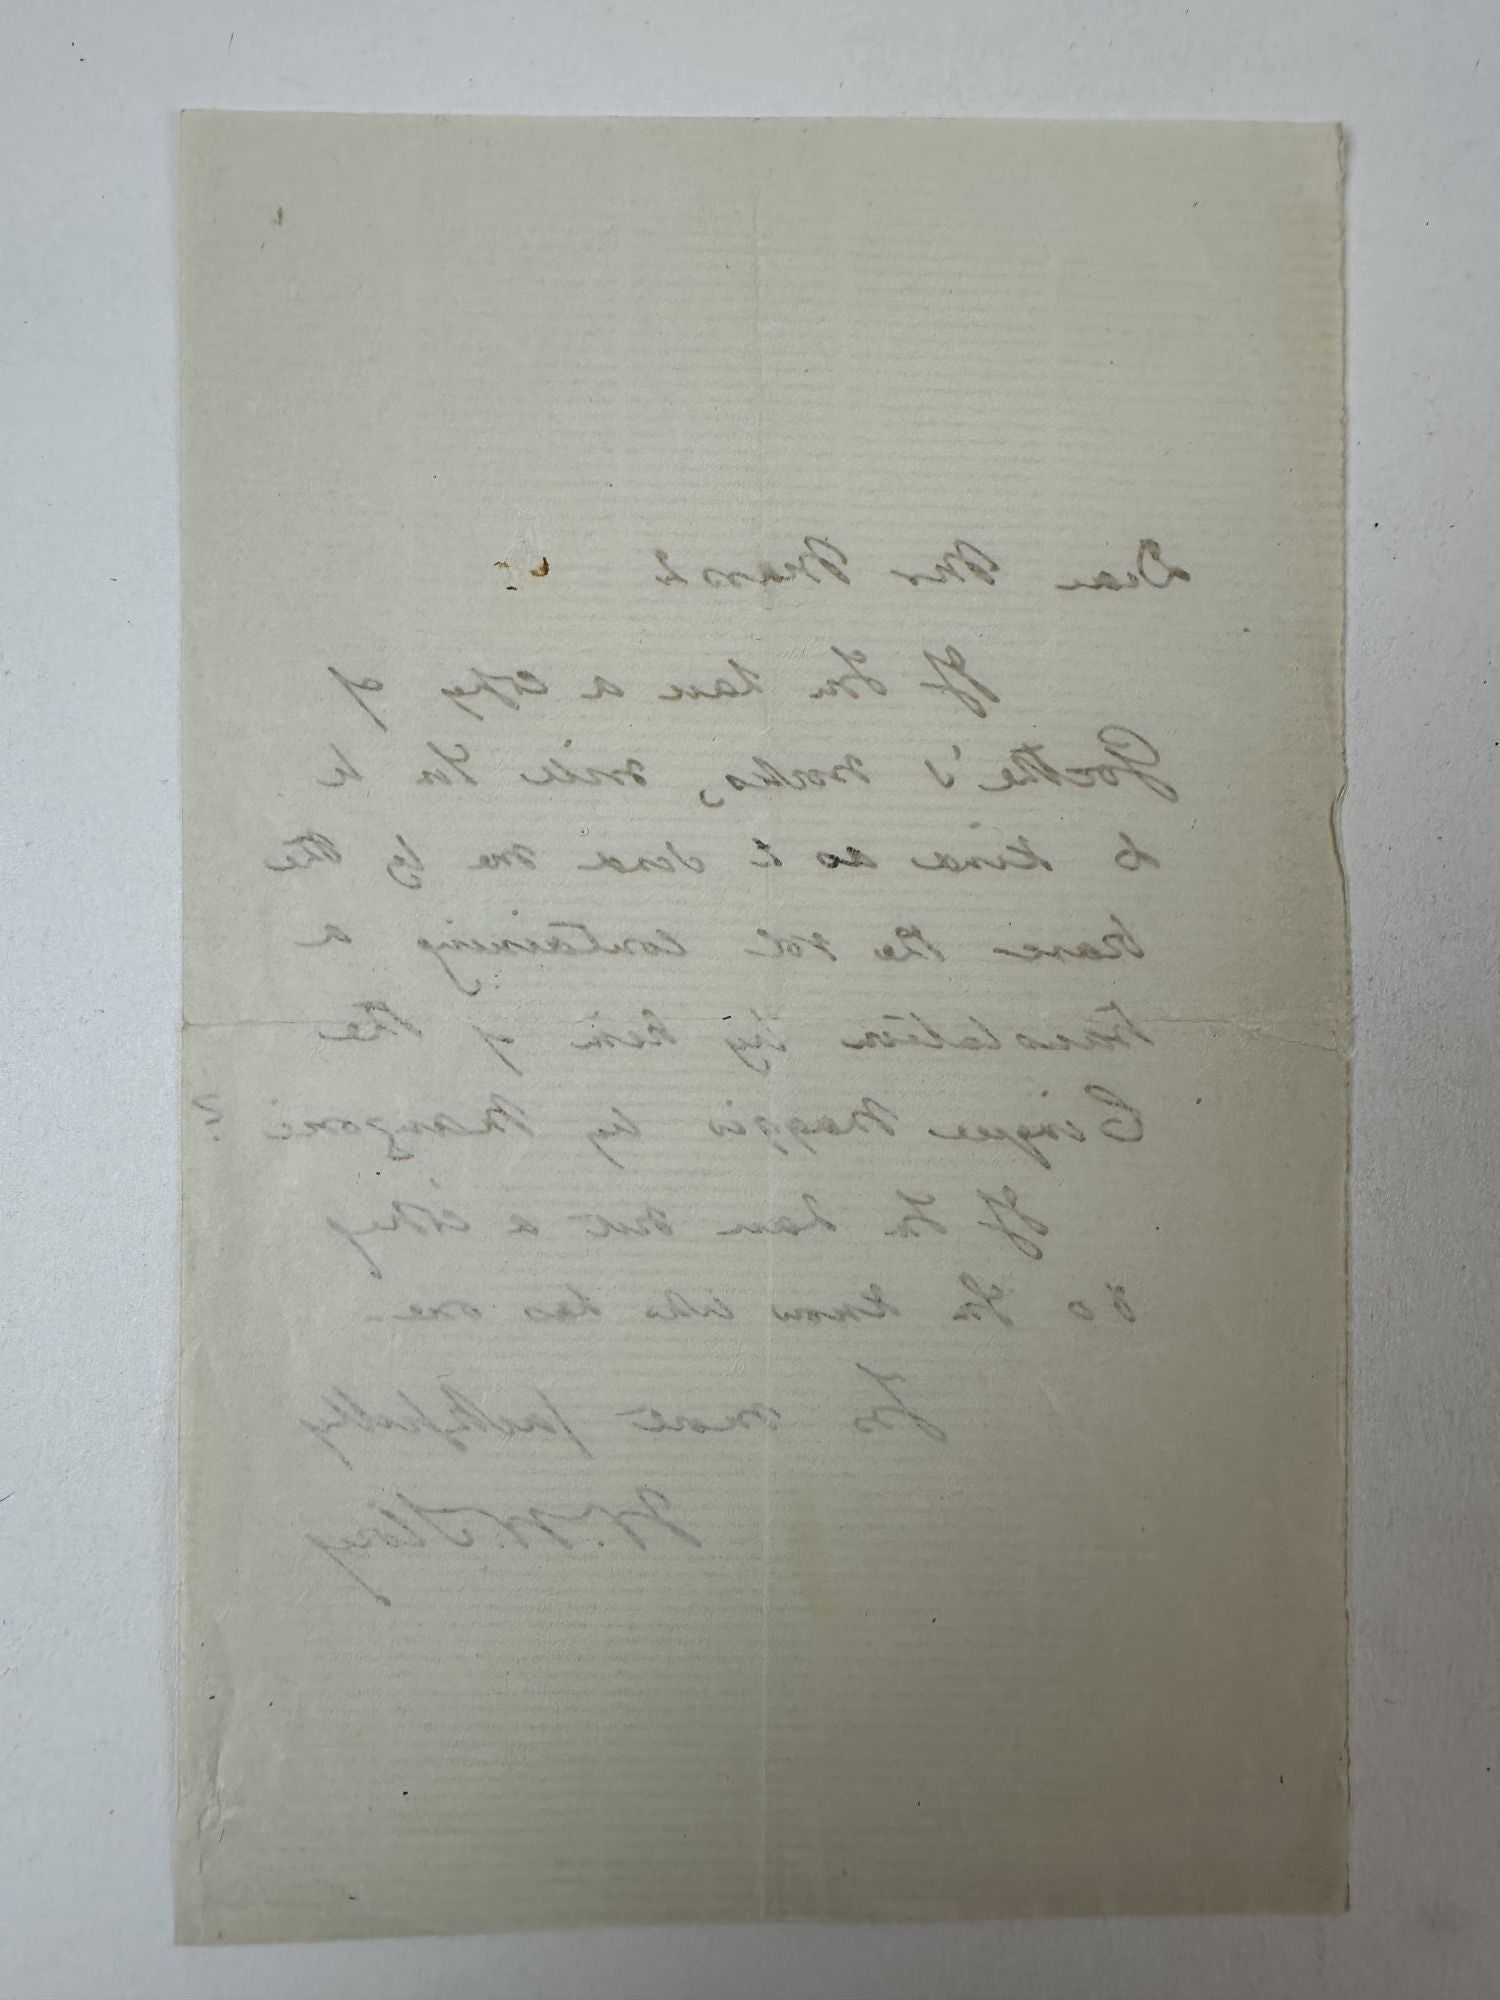 Dear Mrs
If You have a copy of
Goethe's works, will You be
so kind as to send me by the
bearer the vol containing a
translation by him of the
Cinque Maggio by Manzoni?
If You have not a copy
do You know who has one
Yrs most faithfully
W. W. Story